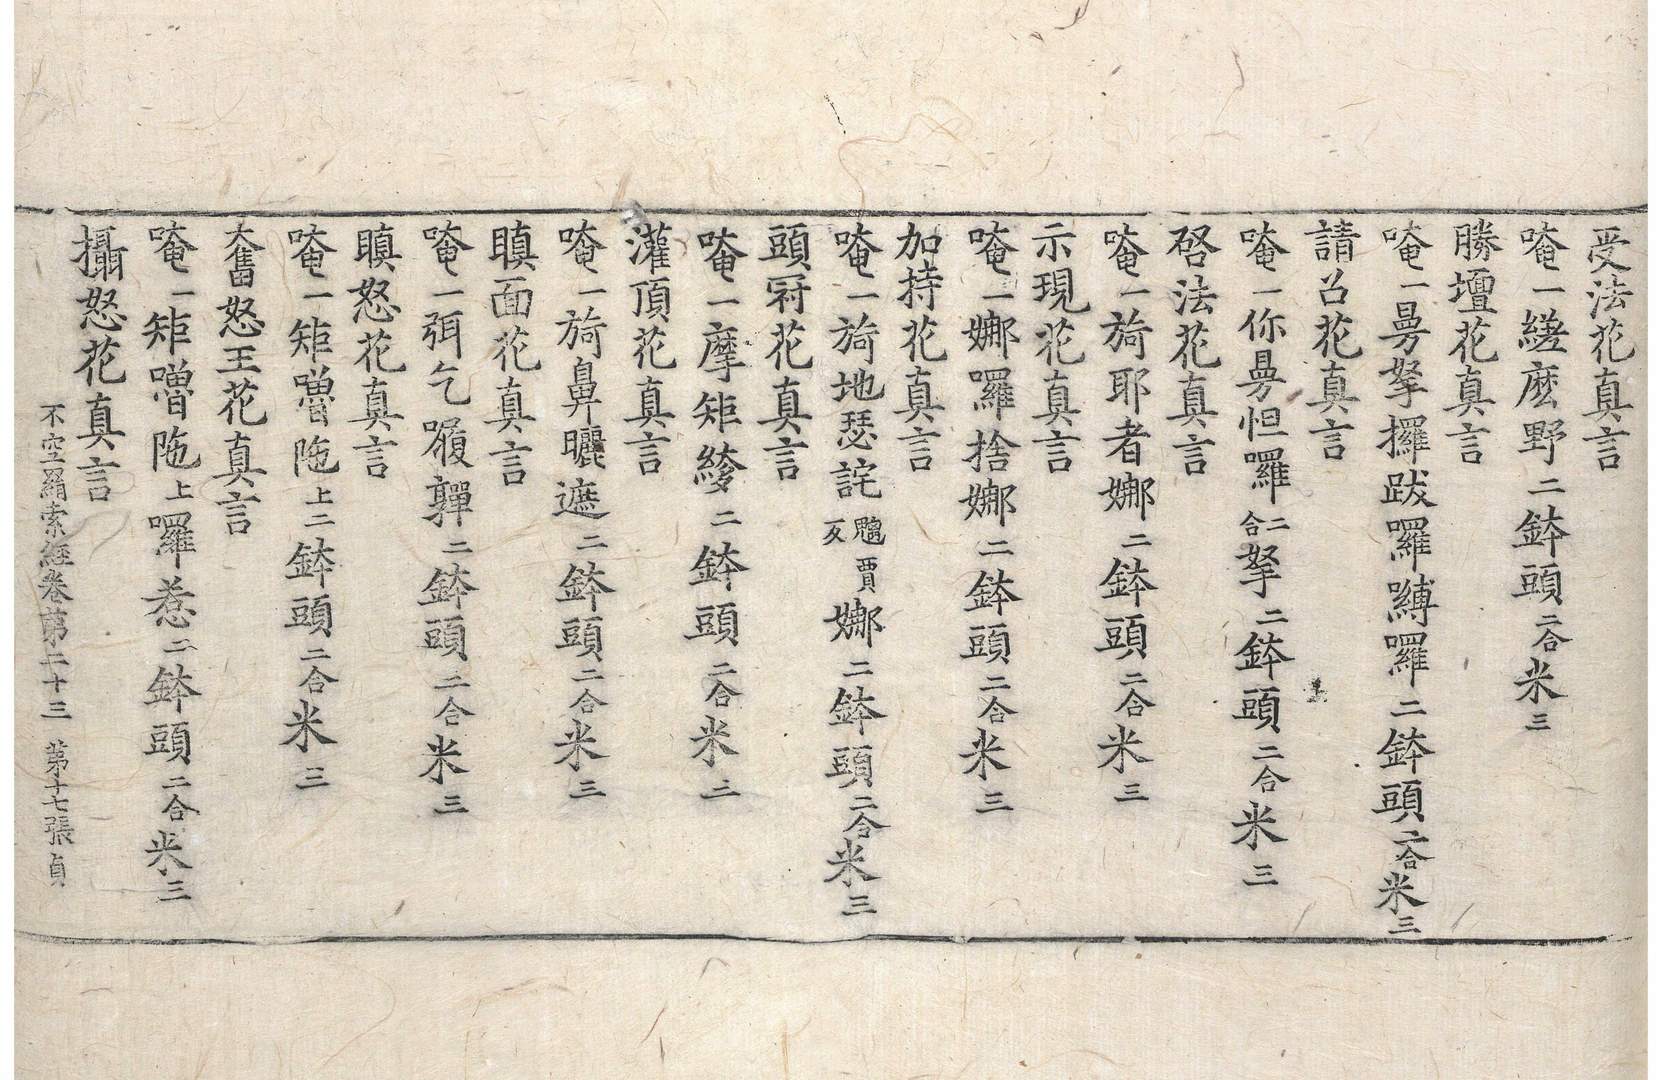 受法花真言
唵一縒麽野二鉢頭二合米三
勝壇花真言
唵一曼拏攞跋囉嚩囉二鉢頭二合米三
請召花真言
唵一你曼怛囉二合拏二鉢頭二合米三
啓法花真言
唵一旖耶者娜二鉢頭二合米三
示現花真言
唵一娜囉捨娜二鉢頭二合米三
加持花真言
唵一旖地瑟詫魑賈反娜二鉢頭二合米三
頭冠花真言
唵一摩矩綘二鉢頭二合米二
灌頂花真言
唵一旖鼻曬遮二鉢頭二合米三
瞋面花真言
唵一弭乞履嚲二鉢頭二合米三
瞋怒花真言
唵一矩嚕陁上二鉢頭二合米三
大奮怒王花真言
唵一矩嚕陁上囉惹二鉢頭二合米三
攝怒花真言
不空羂索經卷第二十三 第十七張 貞